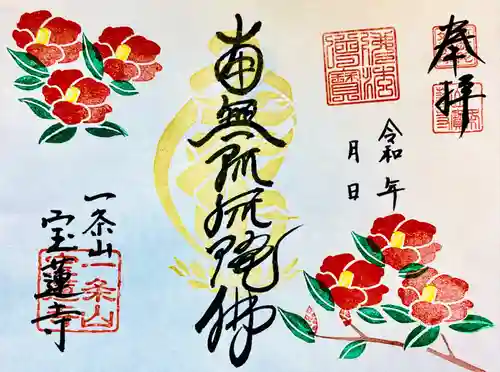 奉拝
令和 年
月 日
南無阿弥陀佛
一条山
宝蓮寺
一条山